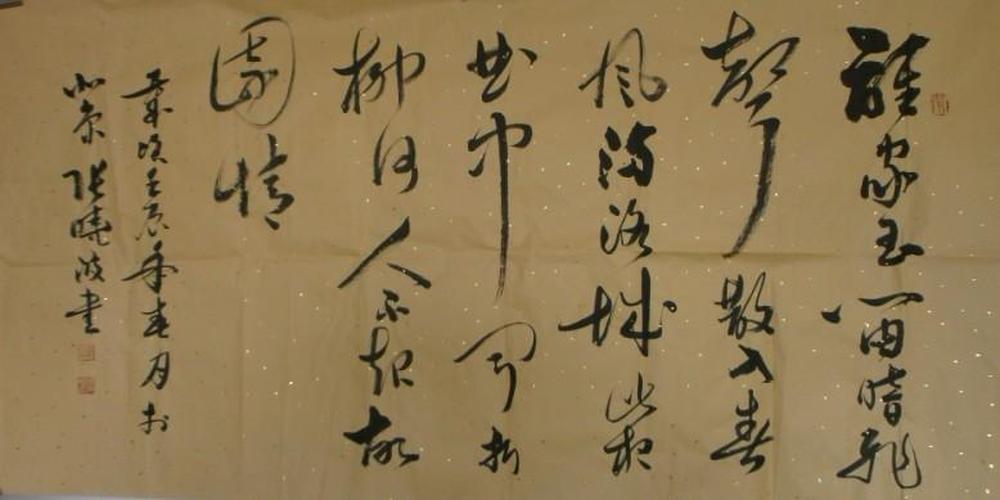 誰家玉笛暗飛
聲散入春
風滿洛城此夜
曲中聞折
柳何人不起故
園情
歲次壬辰年春月於
北京張曉波書